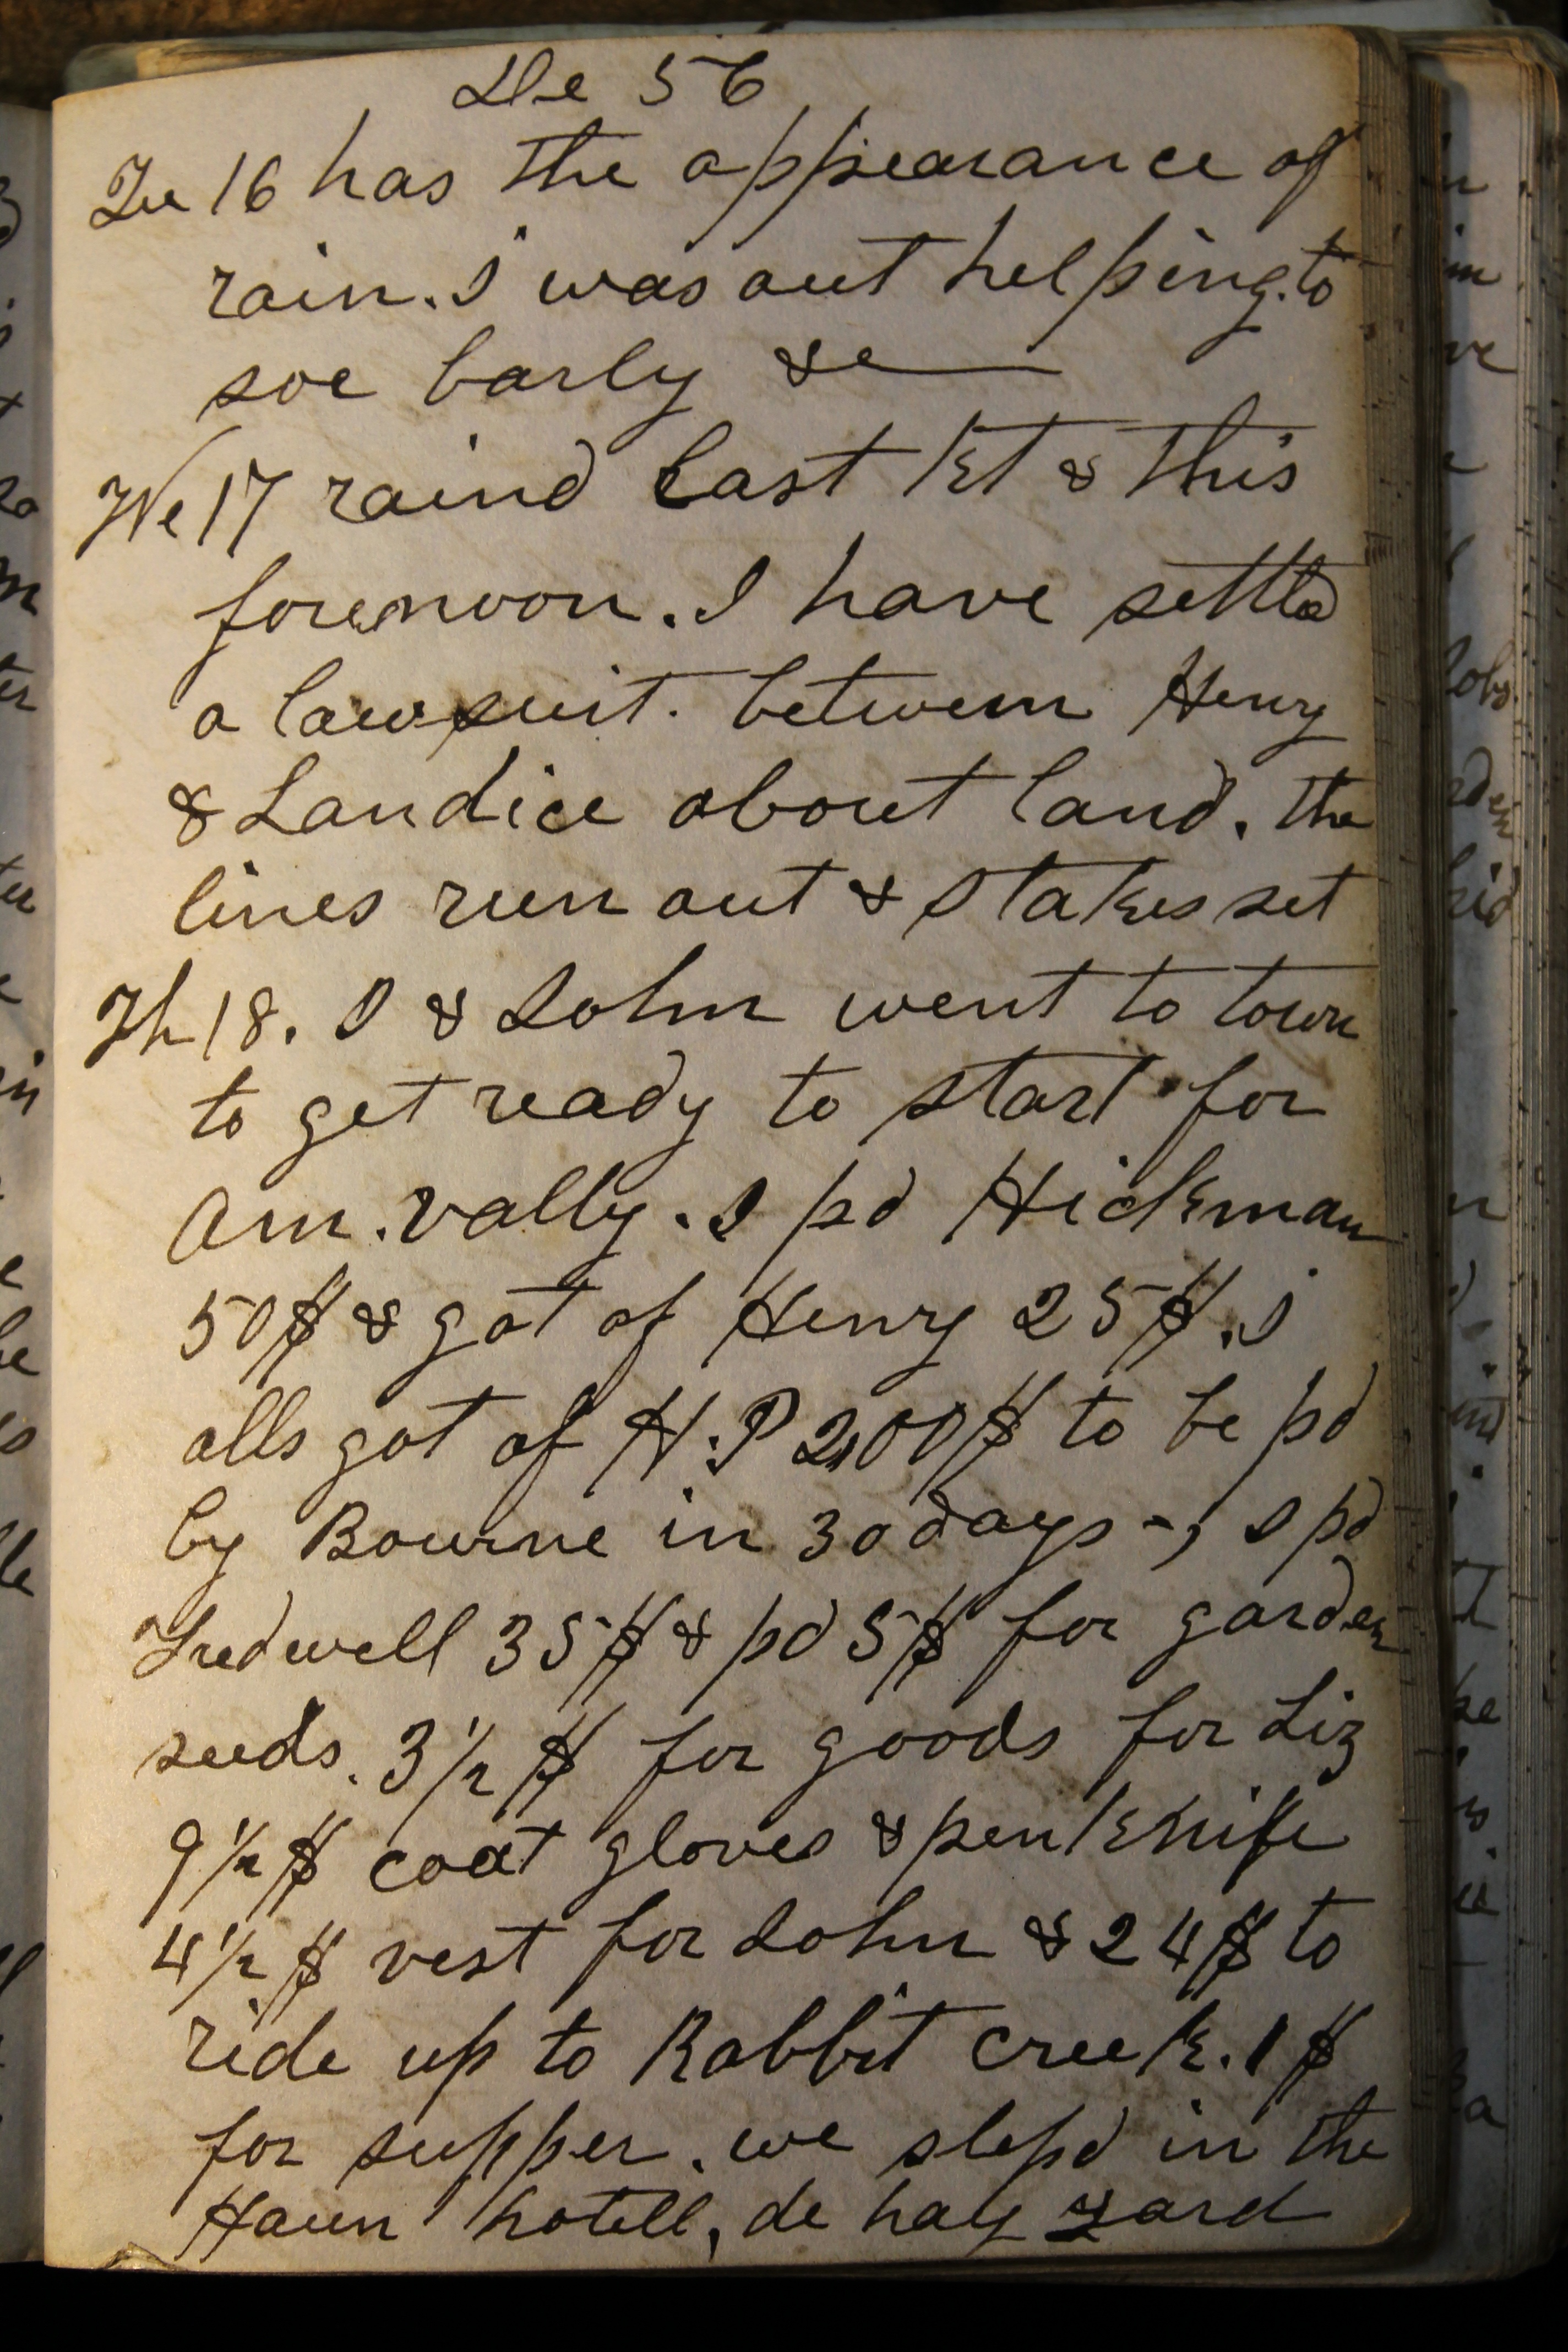 De 56
Tu 16 has the appearance of
rain. I was out helping to
soe barly &c
We 17 raind last Nt & this
forenoon. I have settld
a lawsuit. between Henry
& Landice about land. the
lines run out & stakes set
Th 18. I & John went to town
to get ready to start for
Am. vally. I pd Hickman
50$ & got of Henry 25$. I
alls got of H. P 200$ to be pd
by Bourne in 30 days -, I pd
Tredwell 35$ & pd 5$ for garden
seeds. 3 1/2 $ for goods for Liz
9 1/2 $ coat gloves & penknife
4 1/2 $ vest for John & 24$ to
ride up to Rabbit creek. 1$
for supper. we slepd in the
Haun hotell, de hay yard